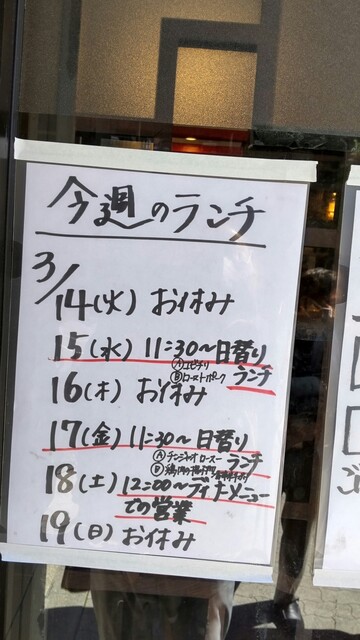 今週のランチ
3/14(火) お休み
15(水) 11:30〜日替り
Ⓐエビチリ
Ⓑローストポーク
ランチ
16(木) お休み
17(金) 11:30〜日替り
Ⓐチンジャオロース
ランチ
18(土) 12:00〜ディナーメニュー
での営業
19(日) お休み